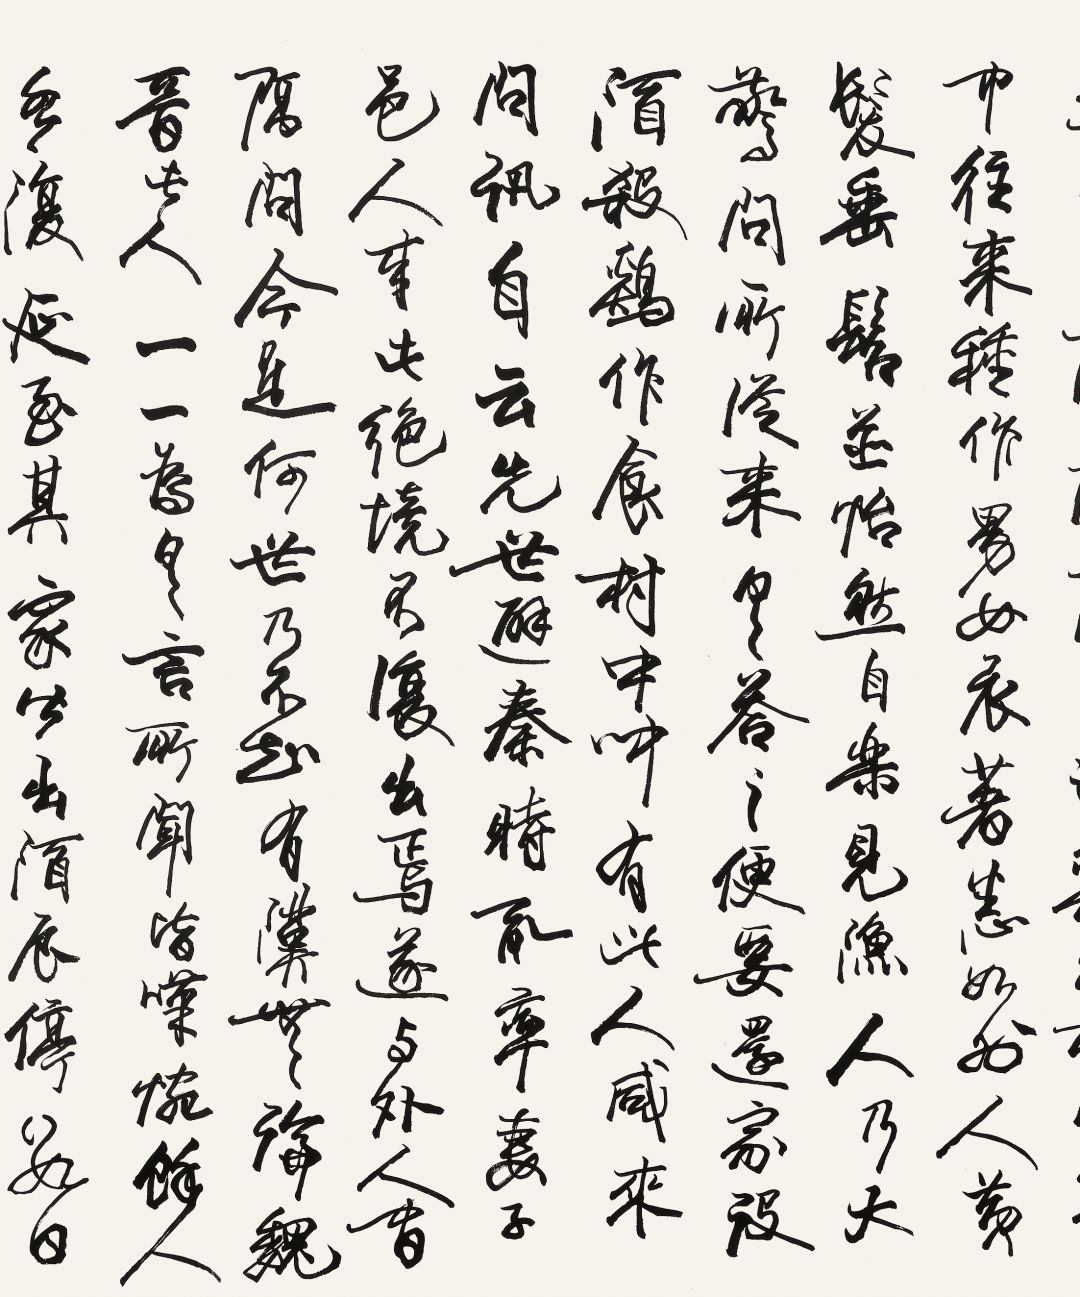 中往來種作男女衣著悉如外人黃
髮垂髫並怡然自樂見漁人乃大
驚問所從來具答之便要還家設
酒殺鷄作食村中聞有此人咸來
問訊自云先世避秦時亂率妻子
邑人來此絕境不復出焉遂与外人間
隔問今是何世乃不知有漢無論魏
晉此人一一為具言所聞皆嘆惋餘人
各復延至其家皆出酒食停數日